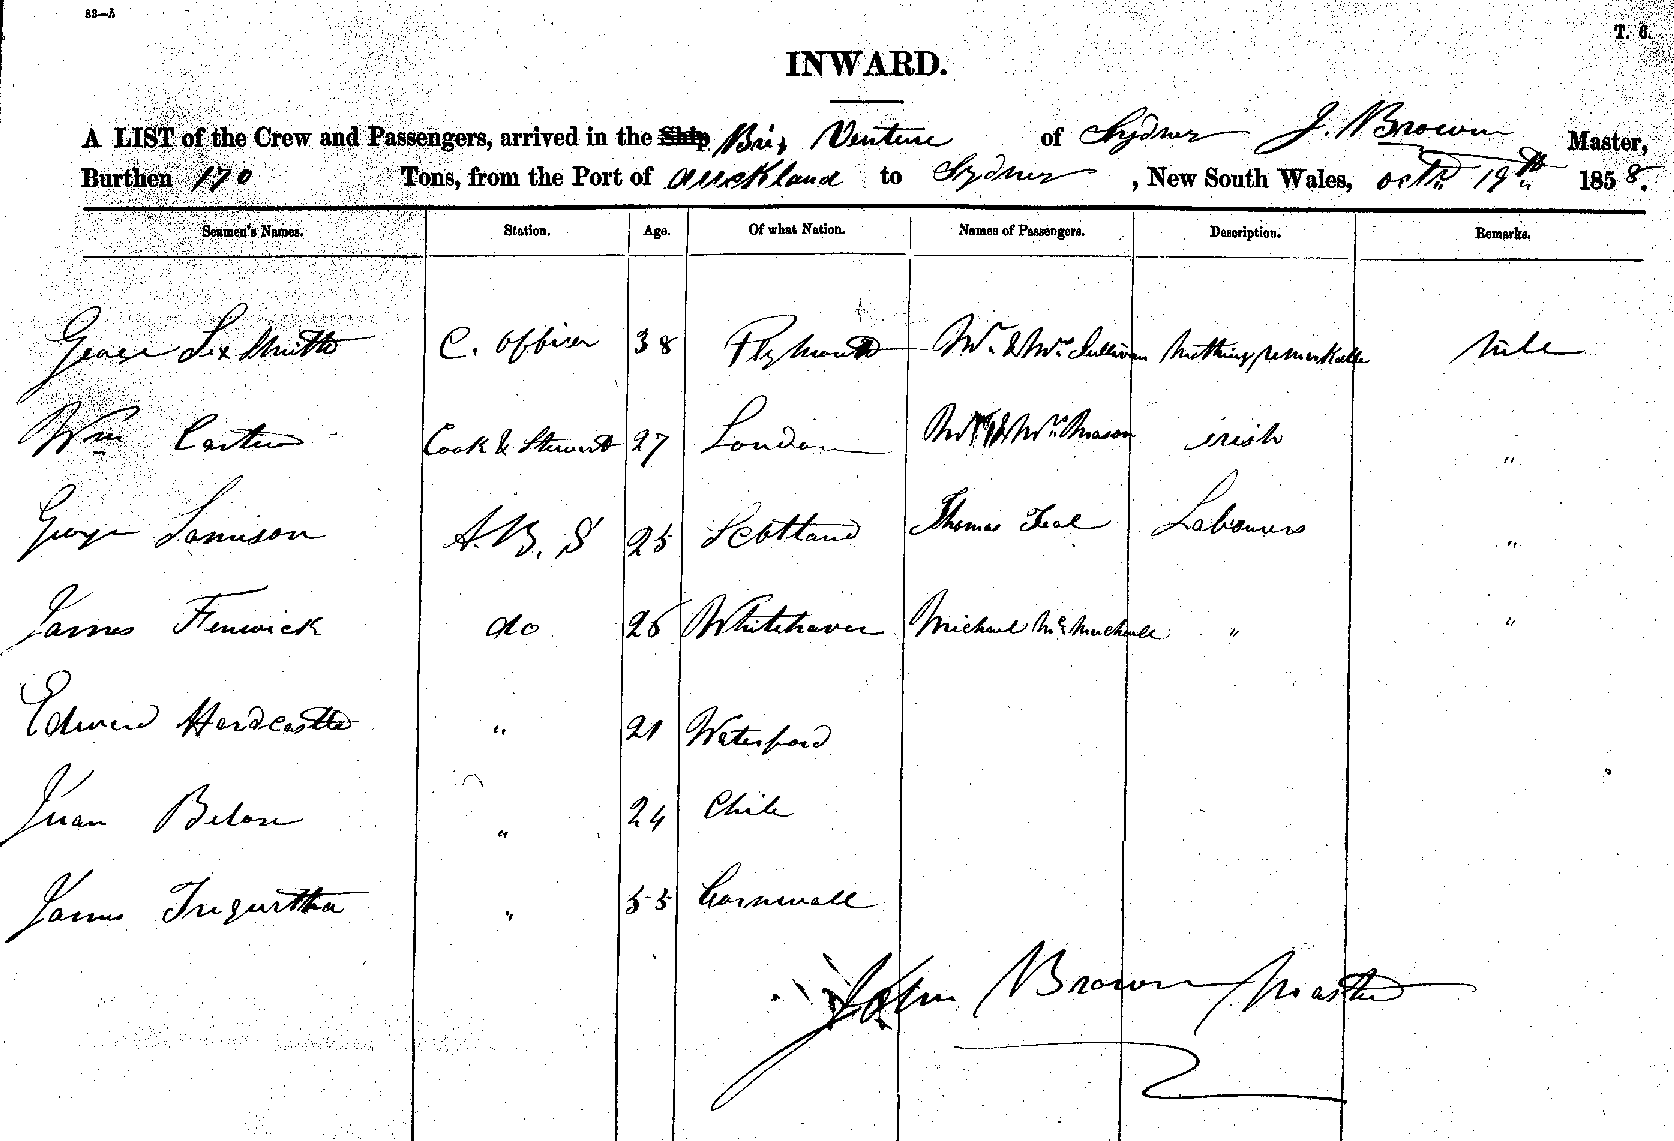 83—A
T. 6.
INWARD.
A LIST of the Crew and Passengers, arrived in the Ship Brig Venture of Sydney J. Brown Master,
Burthen 170 Tons, from the Port of Auckland to Sydney, New South Wales, Octr 19th 1858.
Seamen's Names. Station. Age. Of what Nation. Names of Passengers. Description. Remarks.
George C. Officer 38 Plymouth Mr. & Mrs Sullivan Nothing remarkable
Wm Carter Cook & Steward 27 London & Mrs Mason irish "
George Jamison A. B. S 25 Scotland Thomas Teal Labourers "
James Fenwick do 26 Whitehaven Michael " "
Edward Hardcastle " 21 Waterford
Juan " 24 Chile
James Tregurtha " 55 Cornwall
John Brown Master